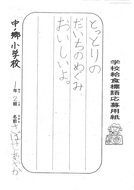 学校給食標語応募用紙
とっとりの
だいちのめぐみ
おいしいよ。
中郷小学校